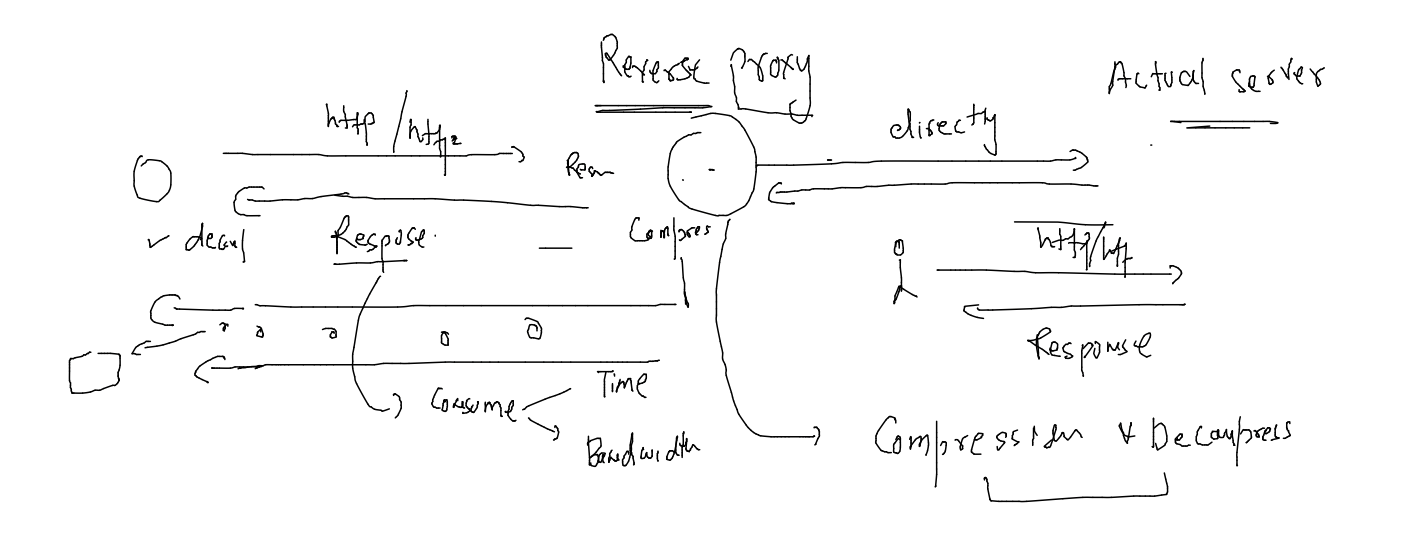 Reverse proxy
Actual server
http / http2
directly
Resp
Compres
Response
http/htt
Response
Consume
Time
Bandwidth
Compression & Decompress